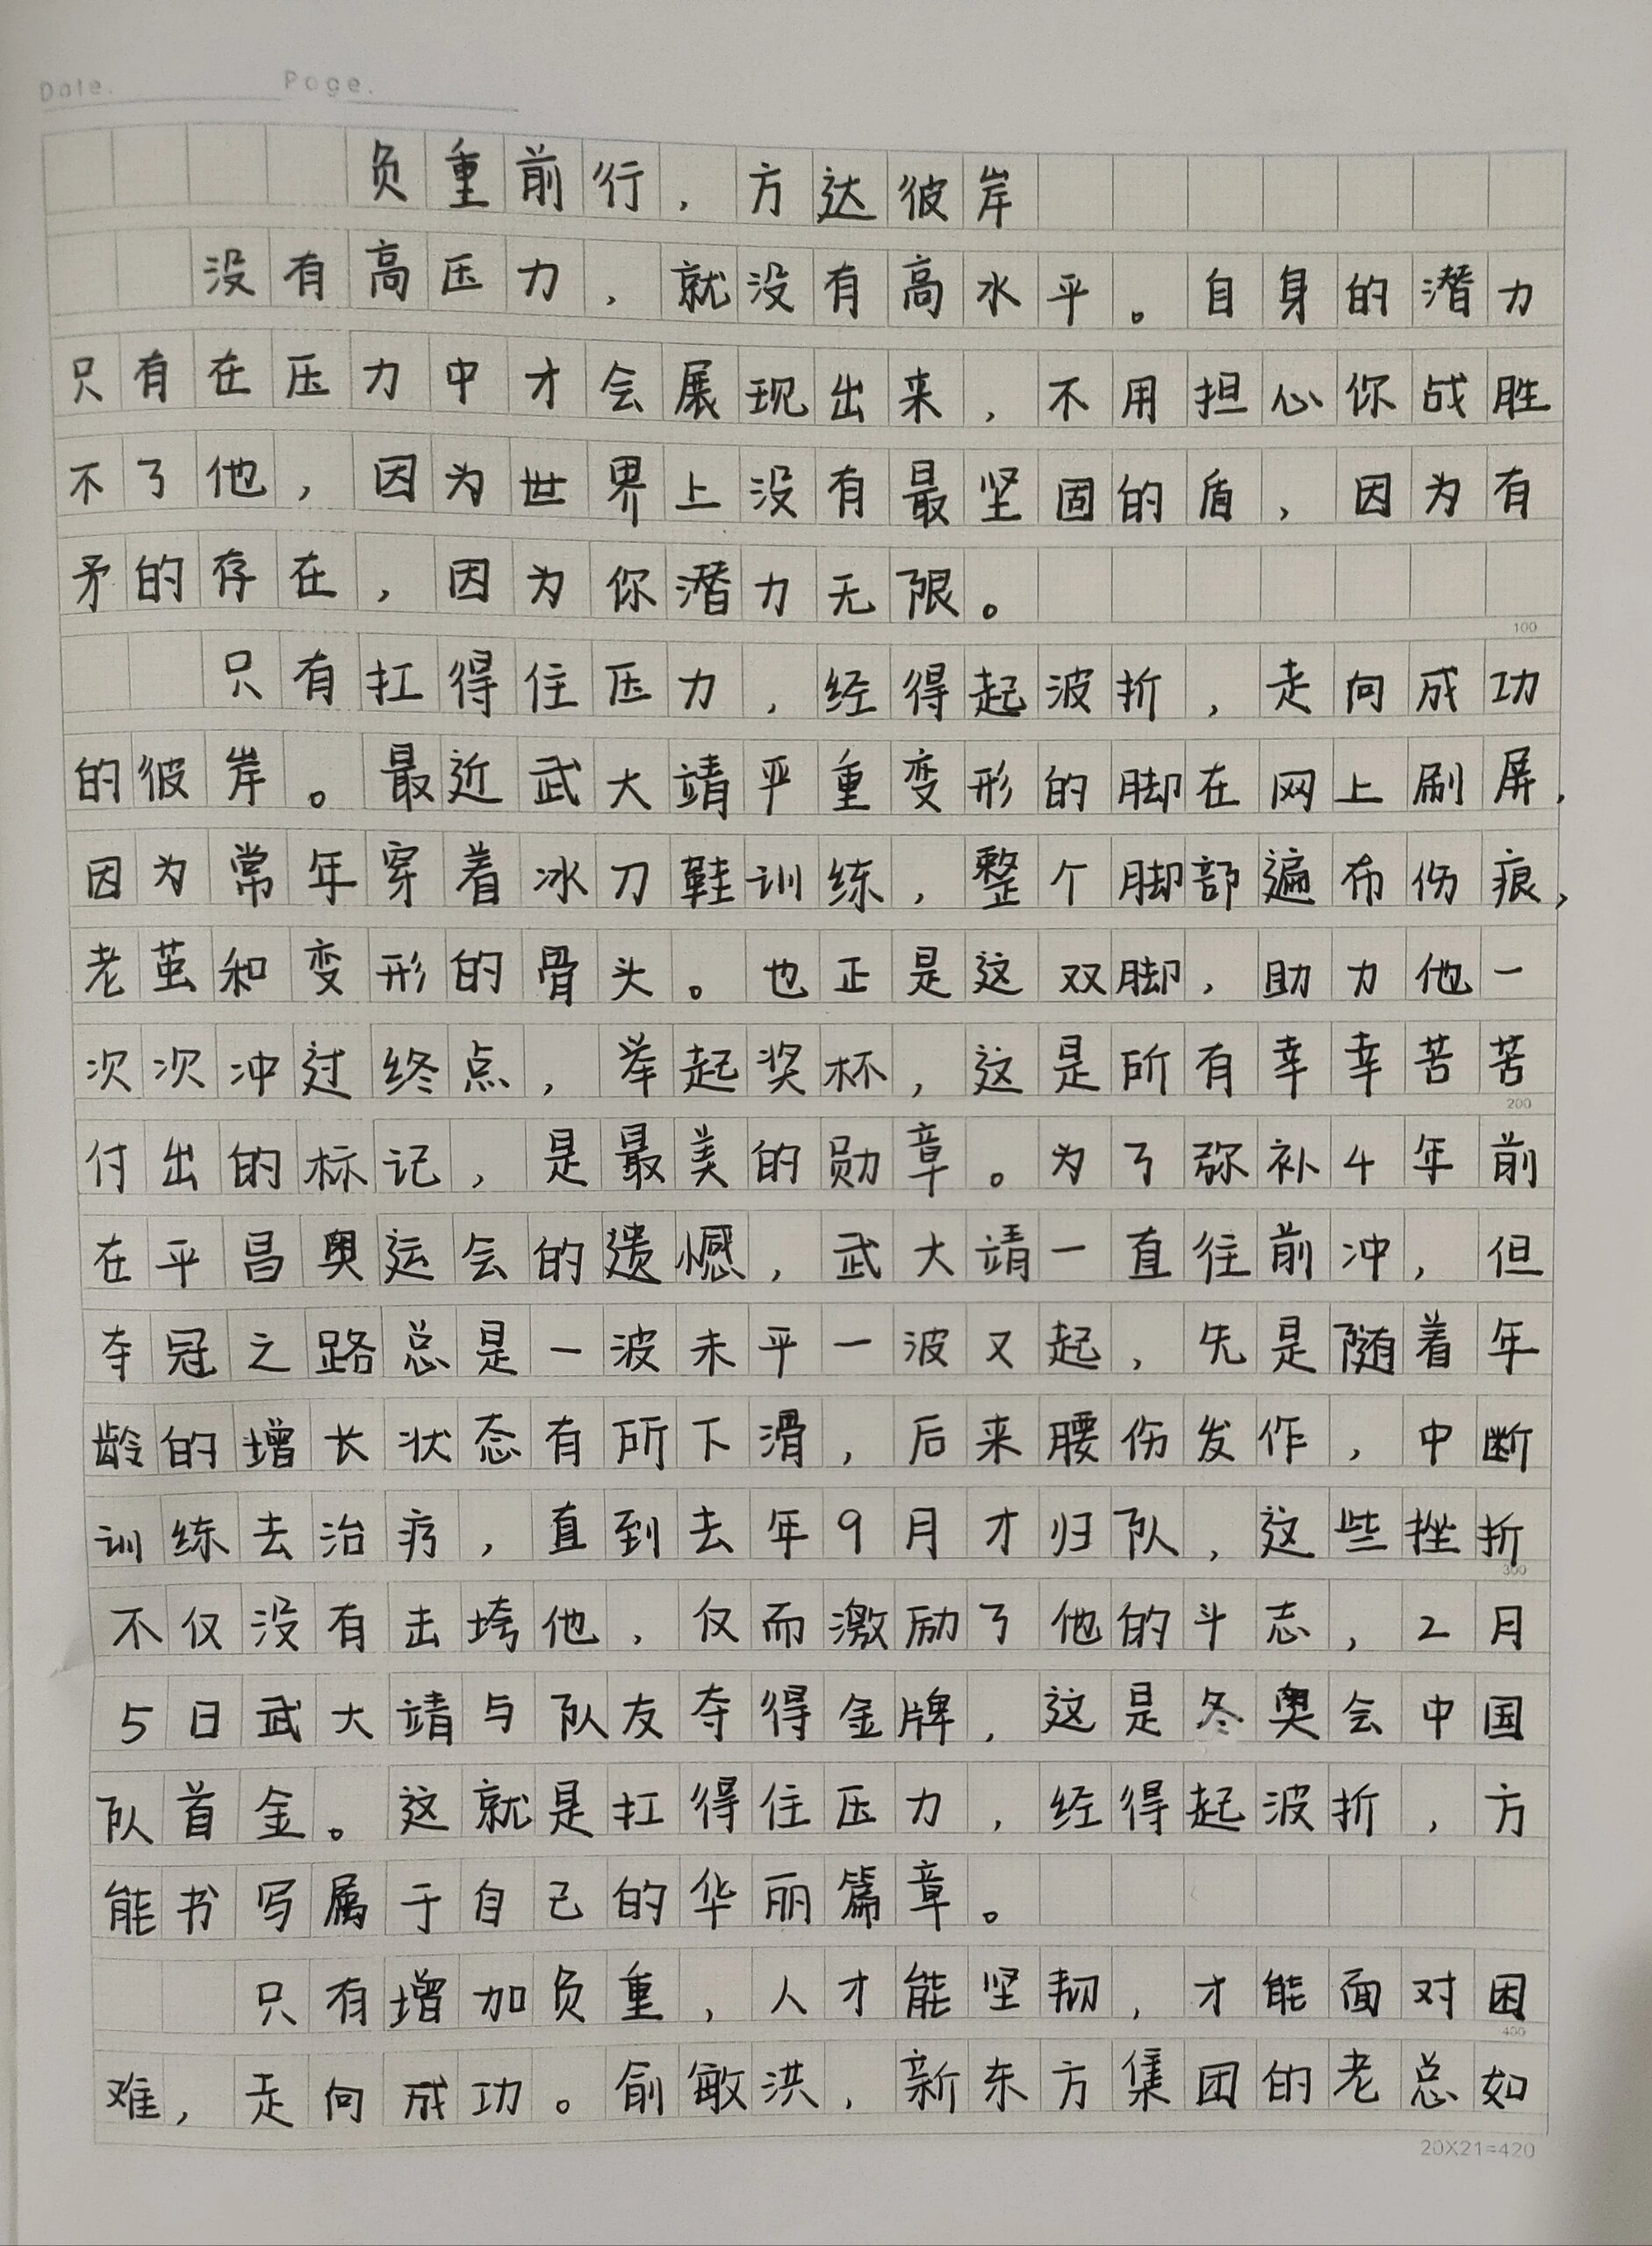 Date. Page.
负重前行,方达彼岸
没有高压力,就没有高水平。自身的潜力
只有在压力中才会展现出来,不用担心你战胜
不了他,因为世界上没有最坚固的盾,因为有
矛的存在,因为你潜力无限。
100
只有扛得住压力,经得起波折,走向成功
的彼岸。最近武大靖严重变形的脚在网上刷屏,
因为常年穿着冰刀鞋训练,整个脚部遍布伤痕,
老茧和变形的骨头。也正是这双脚,助力他一
次次冲过终点,举起奖杯,这是所有幸幸苦苦
200
付出的标记,是最美的勋章。为了弥补4年前
在平昌奥运会的遗憾,武大靖一直往前冲,但
夺冠之路总是一波未平一波又起,先是随着年
龄的增长状态有所下滑,后来腰伤发作,中断
训练去治疗,直到去年9月才归队,这些挫折
300
不仅没有击垮他,仅而激励了他的斗志,2月
5日武大靖与队友夺得金牌,这是冬奥会中国
队首金。这就是扛得住压力,经得起波折,方
能书写属于自己的华丽篇章。
只有增加负重,人才能坚韧,才能面对困
400
难,走向成功。俞敏洪,新东方集团的老总如
20X21=420